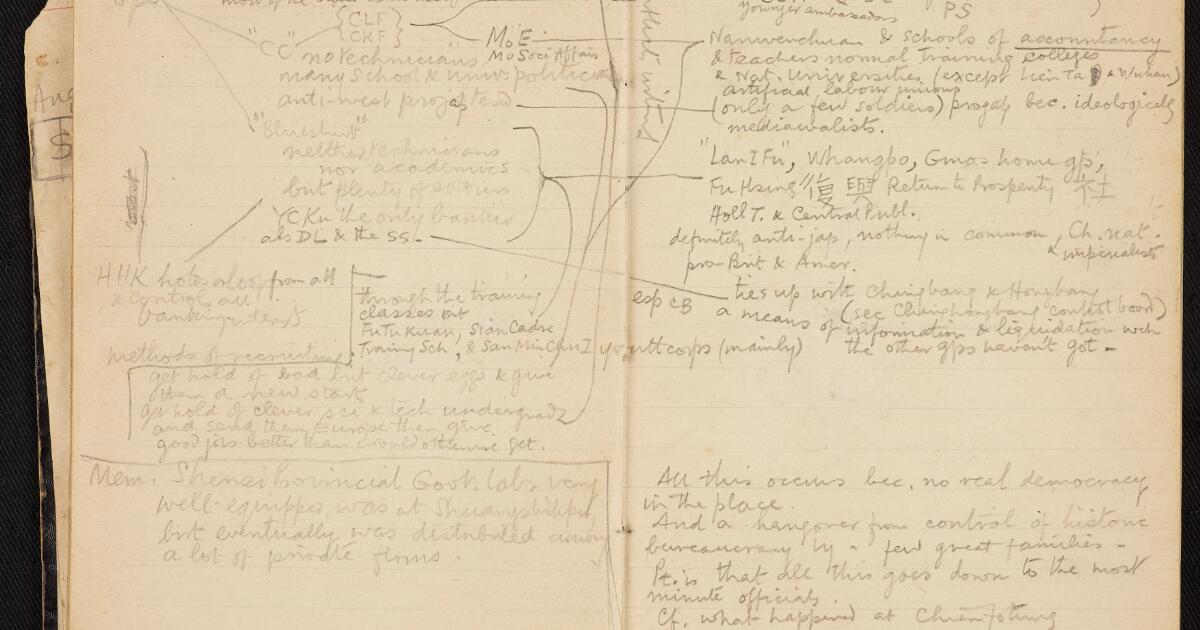 CLF
CKF
"CC" no technicians
MoE
MoSoci Affairs
many school & univ politicians
anti-west progap tend
"Blueshirt"
neither technicians
nor academics
but plenty of
YC Ku the only banker
also DL & the SS.
HHK holds aloof from all
& controls all
banking interests
through the training
classes at
FuTuKuan, Sian Cadre
Training Sch, & San Min Chu I youth corps (mainly)
methods of recruiting
get hold of bad but clever eggs & give
them a new start
get hold of clever sci & tech undergrads
and send them Europe then give
good jobs better than would otherwise get.
Mem. Shensi Provincial Govt. lab. very
well-equipped, was at Shuangshihpu,
but eventually was distributed among
a lot of private firms.
younger ambassadors PS
Nanwenchuan & schools of accountancy
& teachers normal training colleges
& Nat. Universities (except & Wuhan)
artificial labour unions
(only a few soldiers) progap bec. ideologically
mediaevalists.
"Lan I Fu", Whangpo, Gmos home gp,
Fu Hsing 復興 Return to Prosperity 社
Holl T. & Central Publ.
definitely anti-jap, nothing in common, Ch. nat.
& imperialists
pro-Brit & Amer.
esp CB ties up with Chingbang & Hongbang
(sec Chinghongbang control board)
a means of information & liquidation wch
the other gps haven't got -
All this occurs bec. no real democracy
in the place.
And a hangover from control of historic
bureaucracy by a few great families -
Pt. is that all this goes down to the most
minute officials.
Cf. what happened at Chien